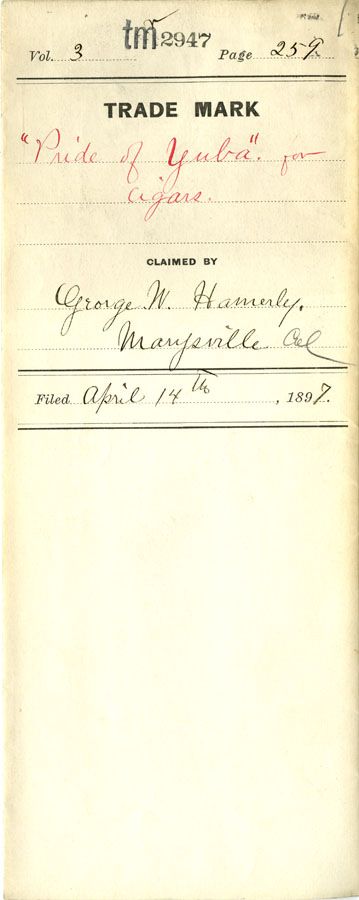 tm 2947
Vol. 3 Page 259
TRADE MARK
"Pride of Yuba". for
Cigars.
CLAIMED BY
George W. Hamerly.
Marysville Cal
Filed April 14th, 1897.